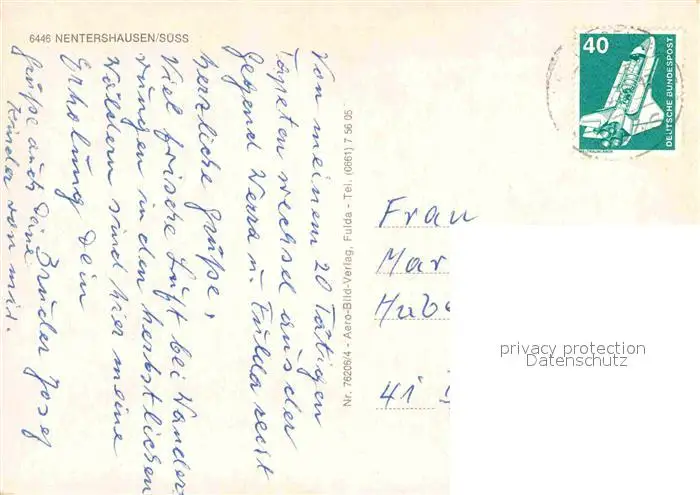 6446 NENTERSHAUSEN/SÜSS
Von meinem 20 Tätigen
Tapetenwechsel aus der
Gegend Werra u. Fulda recht
herzliche Grüße,
Viel frische Luft bei Wander-
rungen in den herbstlichen
Wäldern sind hier meine
Erholung Dein
Bruder Josef
Grüße auch Deine
Kinder von mir.
Nr. 76206/4 - Aero-Bild-Verlag, Fulda - Tel. (0661) 7 56 05
40
DEUTSCHE BUNDESPOST
Frau
Mar
Hube
41
privacy protection
Datenschutz